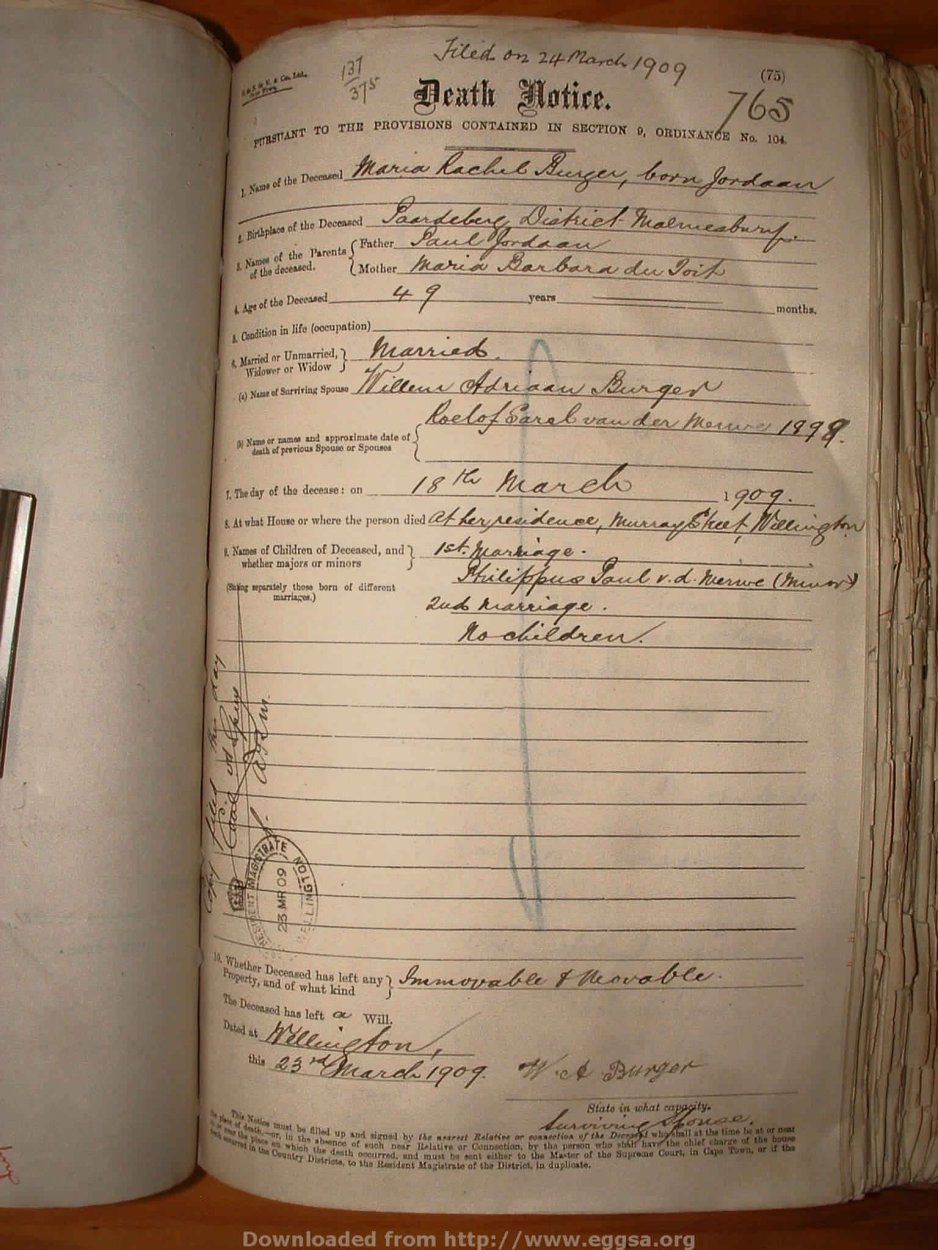 Filed on 24 March 1909
137
375
(75)
Death Notice.
765
PURSUANT TO THE PROVISIONS CONTAINED IN SECTION 9, ORDINANCE No. 104.
1. Name of the Deceased Maria Rachel Burger, born Jordaan
2. Birthplace of the Deceased Paardeberg, District Malmesbury.
3. Names of the Parents of the deceased. Father Paul Jordaan
Mother Maria Barbara du Toit
4. Age of the Deceased 49 years months.
5. Condition in life (occupation)
6. Married or Unmarried, Widower or Widow Married.
(a) Name of Surviving Spouse Willem Adriaan Burger
(b) Name or names and approximate date of death of previous Spouse or Spouses Roelof Sarel van der Merwe 1898.
7. The day of the decease: on 18th March 1909.
8. At what House or where the person died At her residence, Murray Street, Wellington
9. Names of Children of Deceased, and whether majors or minors 1st. Marriage.
(Stating separately those born of different marriages.) Philippus Paul v. d. Merwe (Minor)
2nd Marriage.
No children.
RESIDENT MAGISTRATE
23 MR 09
WELLINGTON
10. Whether Deceased has left any Property, and of what kind Immovable & Movable.
The Deceased has left a Will.
Dated at Wellington,
this 23rd March 1909. W. A Burger
State in what capacity.
Surviving Spouse.
This Notice must be filled up and signed by the nearest Relative or connection of the Deceased who shall at the time be at or near
the place of death,—or, in the absence of such near Relative or Connection, by the person who shall have the chief charge of the house
in or near the place on which the death occurred, and must be sent either to the Master of the Supreme Court, in Cape Town, or if the
death occurred in the Country Districts, to the Resident Magistrate of the District, in duplicate.
Downloaded from http://www.eggsa.org